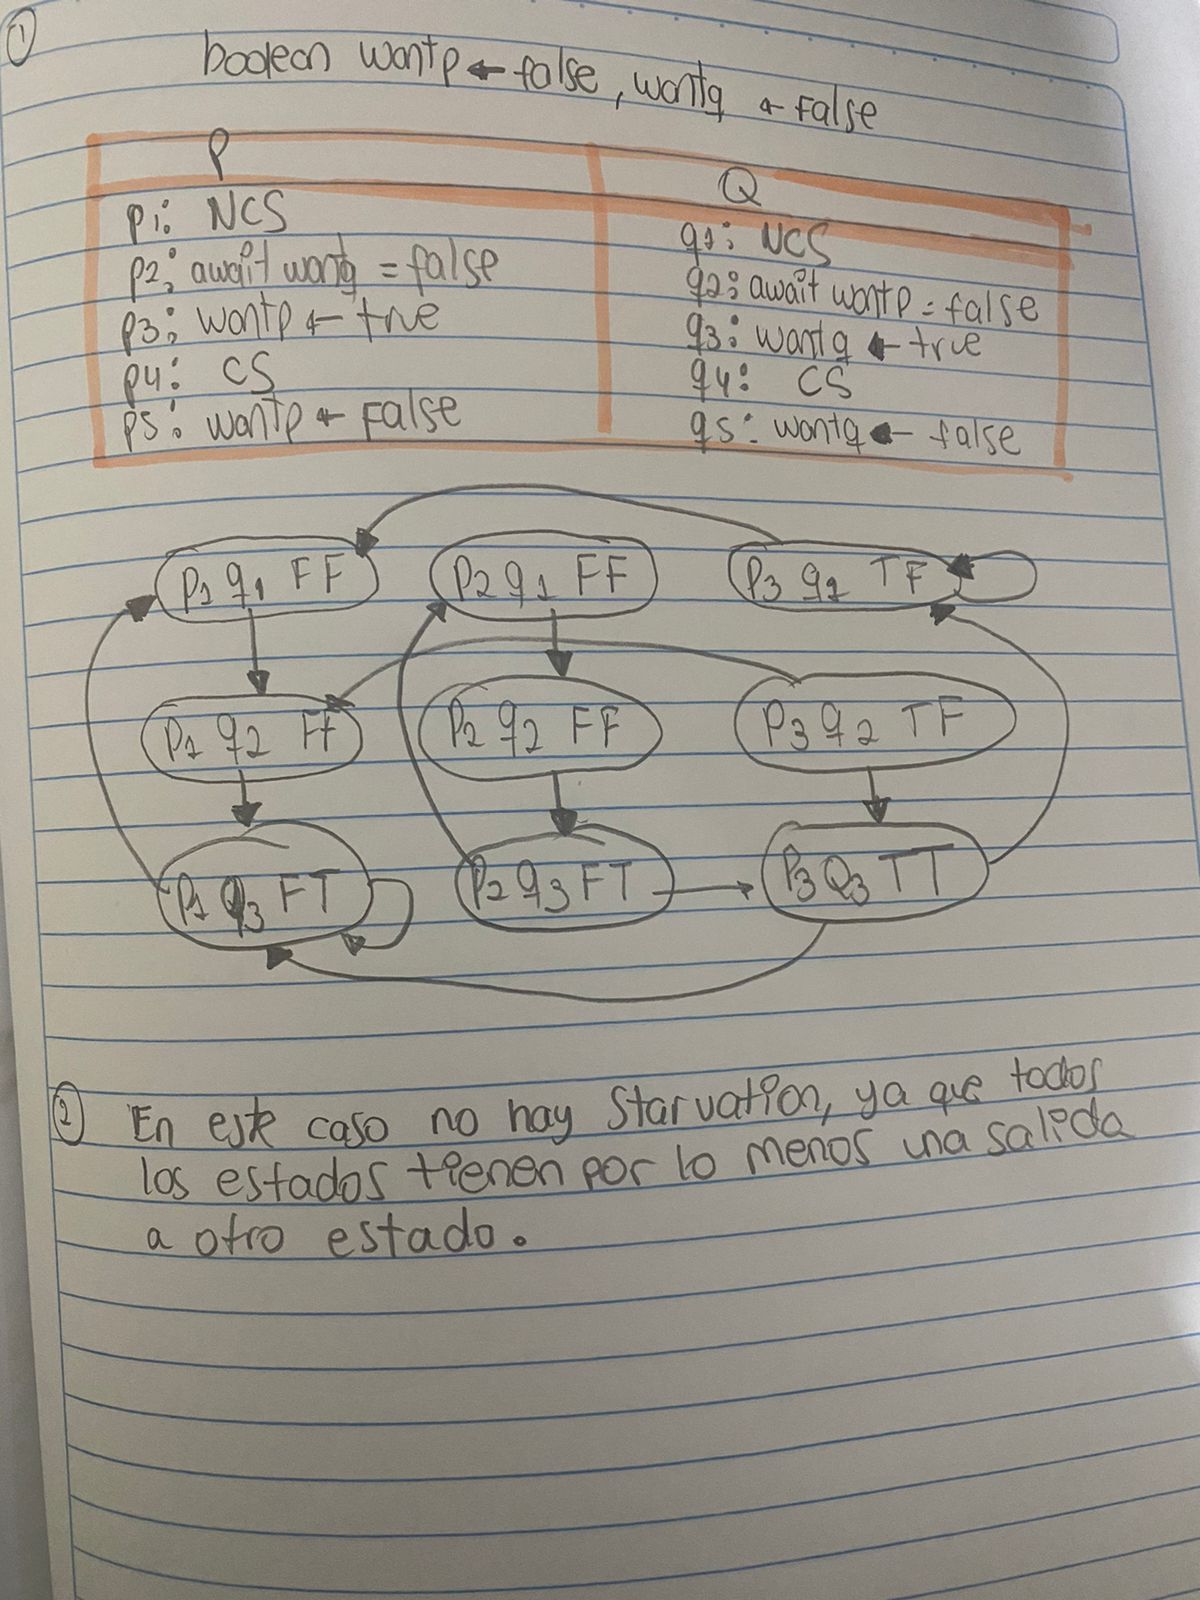 1
boolean wantp ← false, wantq ← False
P
Q
p1: NCS
p2: await wantq = false
p3: wantp ← true
p4: CS
p5: wantp ← False
q1: NCS
q2: await wantp = false
q3: wantq ← true
q4: CS
q5: wantq ← false
P1 q1 FF
P2 q1 FF
P3 q1 TF
P1 q2 FF
P2 q2 FF
P3 q2 TF
P1 q3 FT
P2 q3 FT
P3 Q3 TT
2 En este caso no hay Starvation, ya que todos
los estados tienen por lo menos una salida
a otro estado.